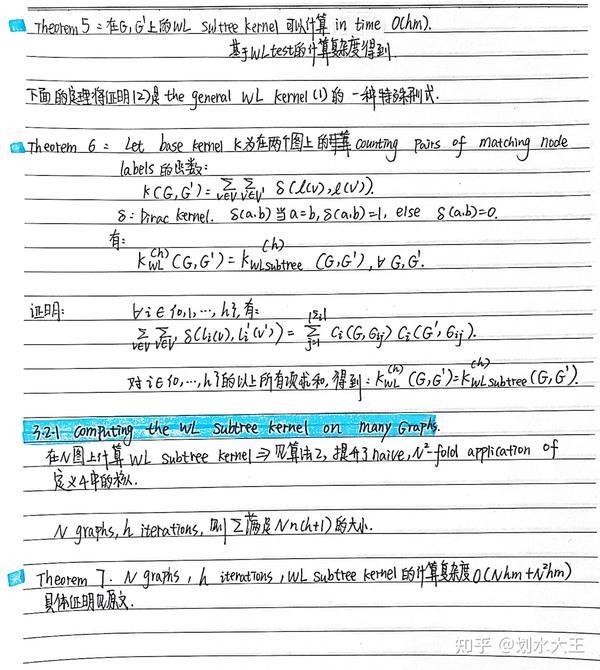 Theorem 5: 在G,G'上的WL subtree kernel 可以计算 in time O(hm).
基于WL test的计算复杂度得到.
下面的定理将证明(2)是 the general WL kernel (1) 的 一种特殊形式.
Theorem 6: Let base kernel k为在两个图上的 counting pairs of matching node
labels 的函数:
k(G,G') = Σ_{v∈V} Σ_{v'∈V'} δ(l(v), l(v')).
δ: Dirac kernel. δ(a,b) 当 a=b, δ(a,b)=1, else δ(a,b)=0.
有:
k_WL^(h) (G,G') = k_WLsubtree^(h) (G,G'), ∀ G,G'.
证明: ∀ i ∈ {0,1,...,h}, 有:
Σ_{v∈V} Σ_{v'∈V'} δ(l_i(v), l_i'(v')) = Σ_{j=1}^{|Σ_i|} C_i(G,σ_ij) C_i(G',σ_ij).
对 i∈{0,...,h}的以上所有项求和, 得到: k_WL^(h) (G,G') = k_WLsubtree^(h) (G,G').
3.2.1 Computing the WL Subtree kernel on many Graphs.
在N图上计算 WL subtree kernel ⇒ 见算法2, 提升了naive, N²-fold application of
定义4中的核.
N graphs, h iterations, 则 Σ 满足 Nn(h+1) 的大小.
Theorem 7. N graphs, h iterations, WL subtree kernel 的计算复杂度 O(Nhm+N²hn)
具体证明见原文.
知乎 @划水大王